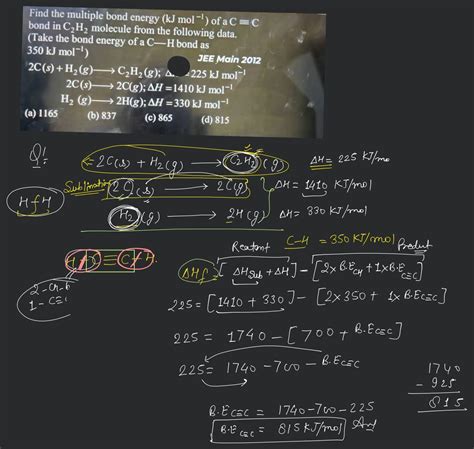 Find the multiple bond energy (kJ mol⁻¹) of a C ≡ C
bond in C₂H₂ molecule from the following data.
(Take the bond energy of a C—H bond as
350 kJ mol⁻¹)
JEE Main 2012
2C(s) + H₂(g) ⟶ C₂H₂(g); Δ 225 kJ mol⁻¹
2C(s) ⟶ 2C(g); ΔH = 1410 kJ mol⁻¹
H₂ (g) ⟶ 2H(g); ΔH = 330 kJ mol⁻¹
(a) 1165 (b) 837 (c) 865 (d) 815
Q!
2C(s) + H₂(g) ⟶ C₂H₂(g) ΔH = 225 KJ/mo
Sublimation 2C(s) ⟶ 2C(g) ΔH = 1410 KJ/mol
HfH
H₂(g) ⟶ 2H(g) ΔH = 330 KJ/mol
C-H = 350 KJ/mol
Reactant Product
H-C≡C-H
ΔHf = [ΔHsub + ΔH] - [2×B.E CH + 1×B.E C≡C]
1-C≡C
225 = [1410 + 330] - [2×350 + 1× B.E C≡C]
225 = 1740 - [700 + B.E C≡C]
225 = 1740 - 700 - B.E C≡C
1740
- 925
815
B.E C≡C = 1740-700-225
B.E C≡C = 815 KJ/mol